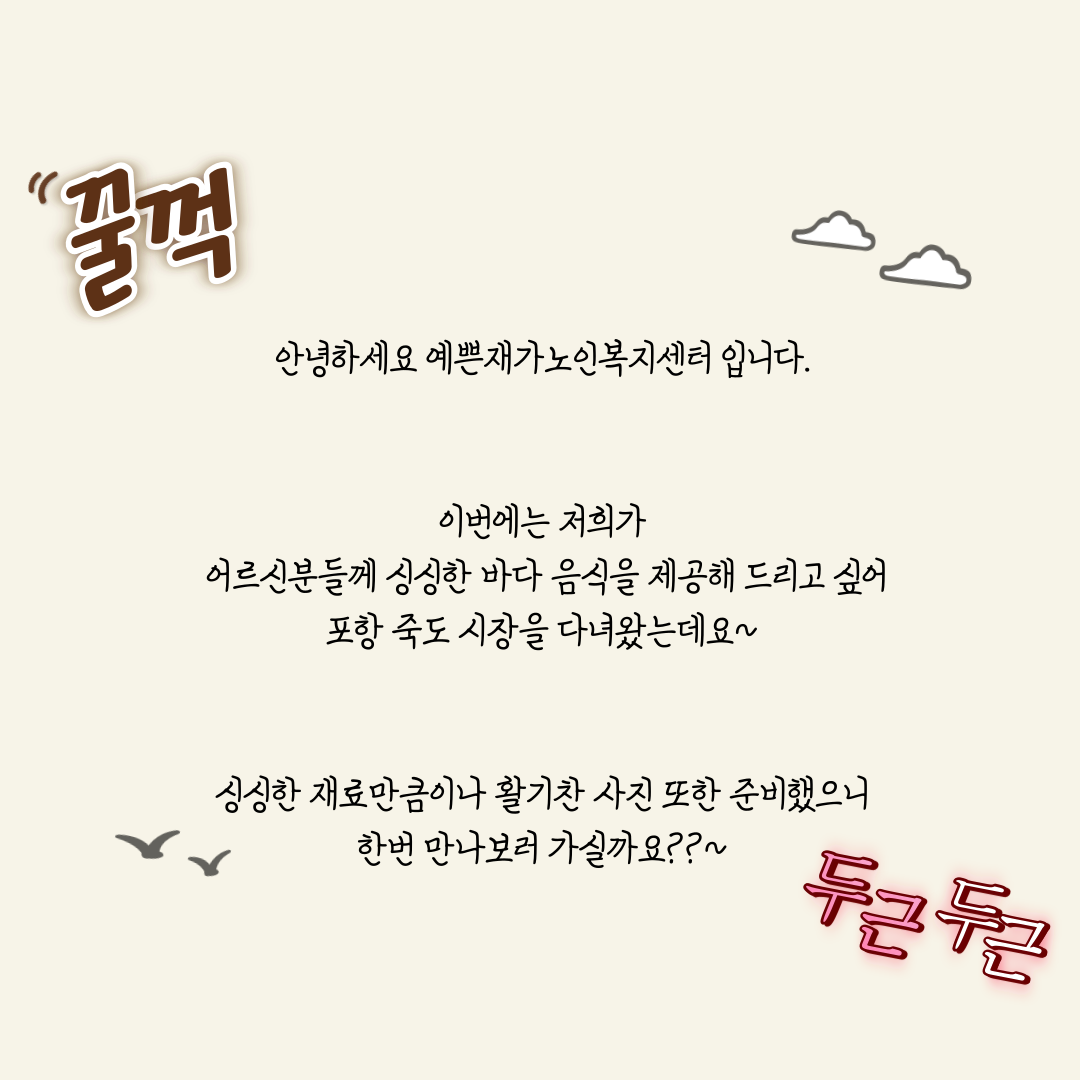 꿀꺽
안녕하세요 예쁜재가노인복지센터 입니다.
이번에는 저희가
어르신분들께 싱싱한 바다 음식을 제공해 드리고 싶어
포항 죽도 시장을 다녀왔는데요~
싱싱한 재료만큼이나 활기찬 사진 또한 준비했으니
한번 만나보러 가실까요??~
두근두근